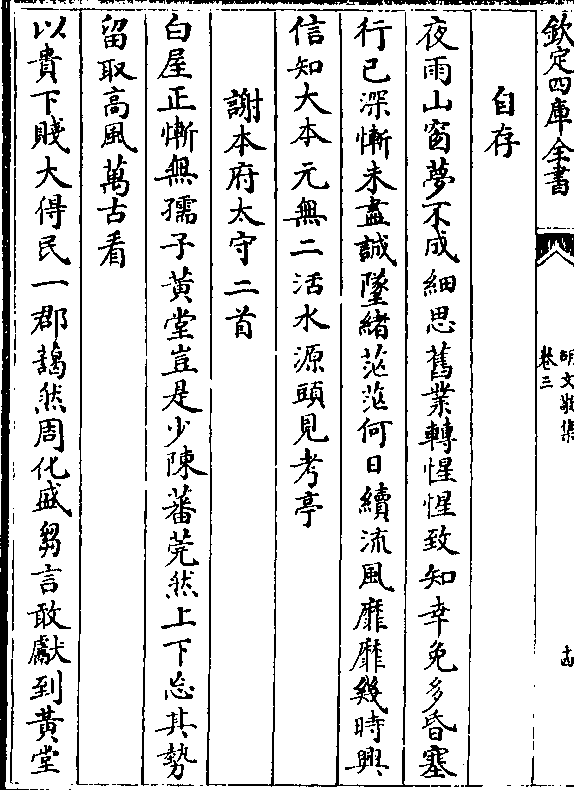 欽定四庫全書
胡文敬集
卷三
十四
自存
夜雨山窗夢不成細思舊業轉惺惺致知幸免多昏塞
行已深慚未盡誠墜緒茫茫何日續流風靡靡幾時興
信知大本元無二活水源頭見考亭
謝本府太守二首
白屋正慚無孺子黃堂豈是少陳蕃莞然上下忘其勢
留取高風萬古看
以貴下賤大得民一郡藹然周化盛芻言敢獻到黃堂